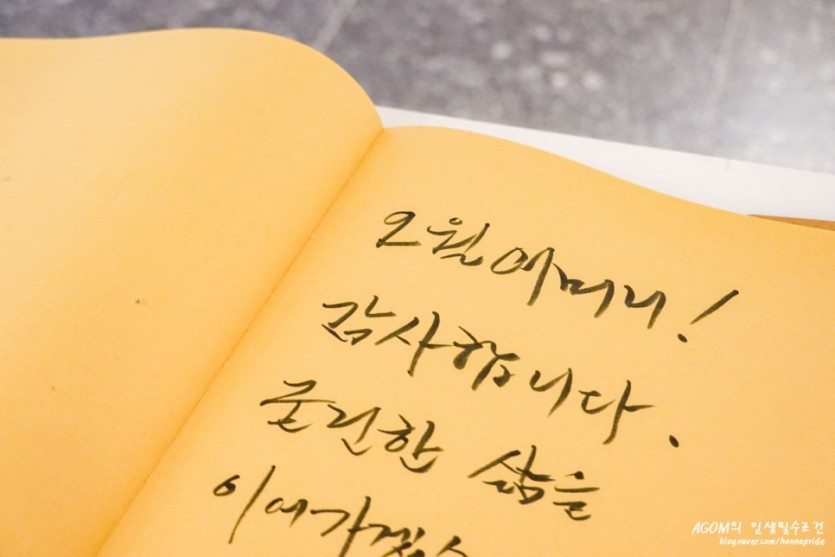 오월 어머니!
감사합니다.
굴건한 삶을
이어가겠
AGOM의 인생필수조건
blog.naver.com/hannapride